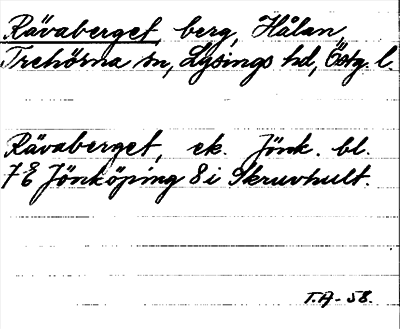 Rävaberget, berg, Hålan,
Trehörna sn, Lysings hd, Östg. l.
Rävaberget, ek. Jönk. bl.
7E Jönköping 8i Skruvhult.
T.A-58.